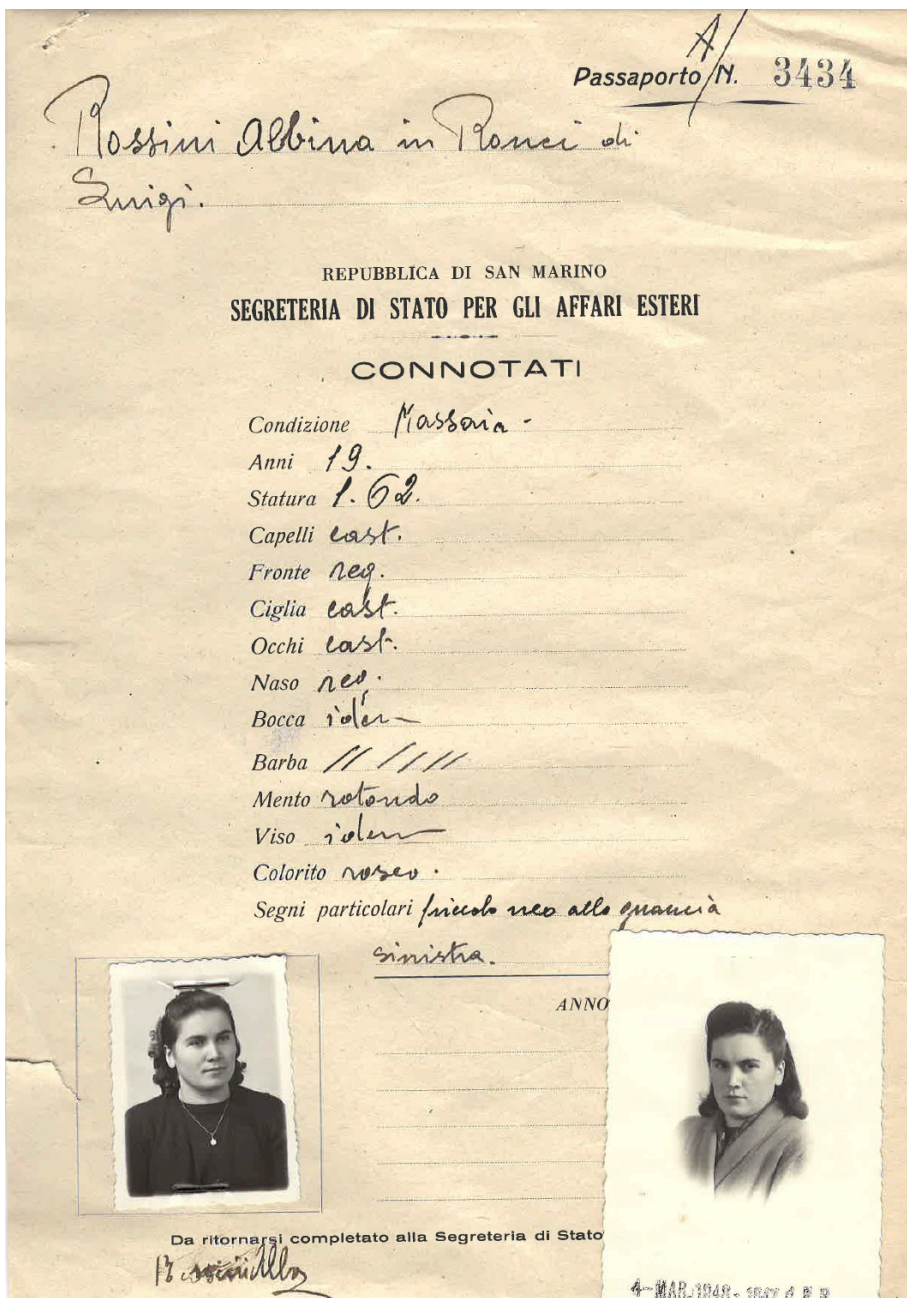 A/
Passaporto N. 3434
Rossini Albina in Ronci di
Luigi.
REPUBBLICA DI SAN MARINO
SEGRETERIA DI STATO PER GLI AFFARI ESTERI
CONNOTATI
Condizione Massaia -
Anni 19.
Statura 1.62.
Capelli cast.
Fronte reg.
Ciglia cast.
Occhi cast.
Naso reg.
Bocca idem
Barba // / / //
Mento rotondo
Viso idem
Colorito roseo.
Segni particolari piccolo neo alla guancia
sinistra.
ANNO
Da ritornarsi completato alla Segreteria di Stato
4-MAR.1948